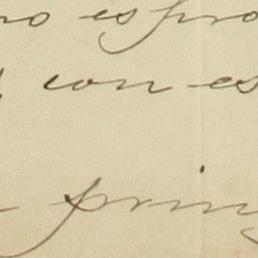 no es pro
con es
prin